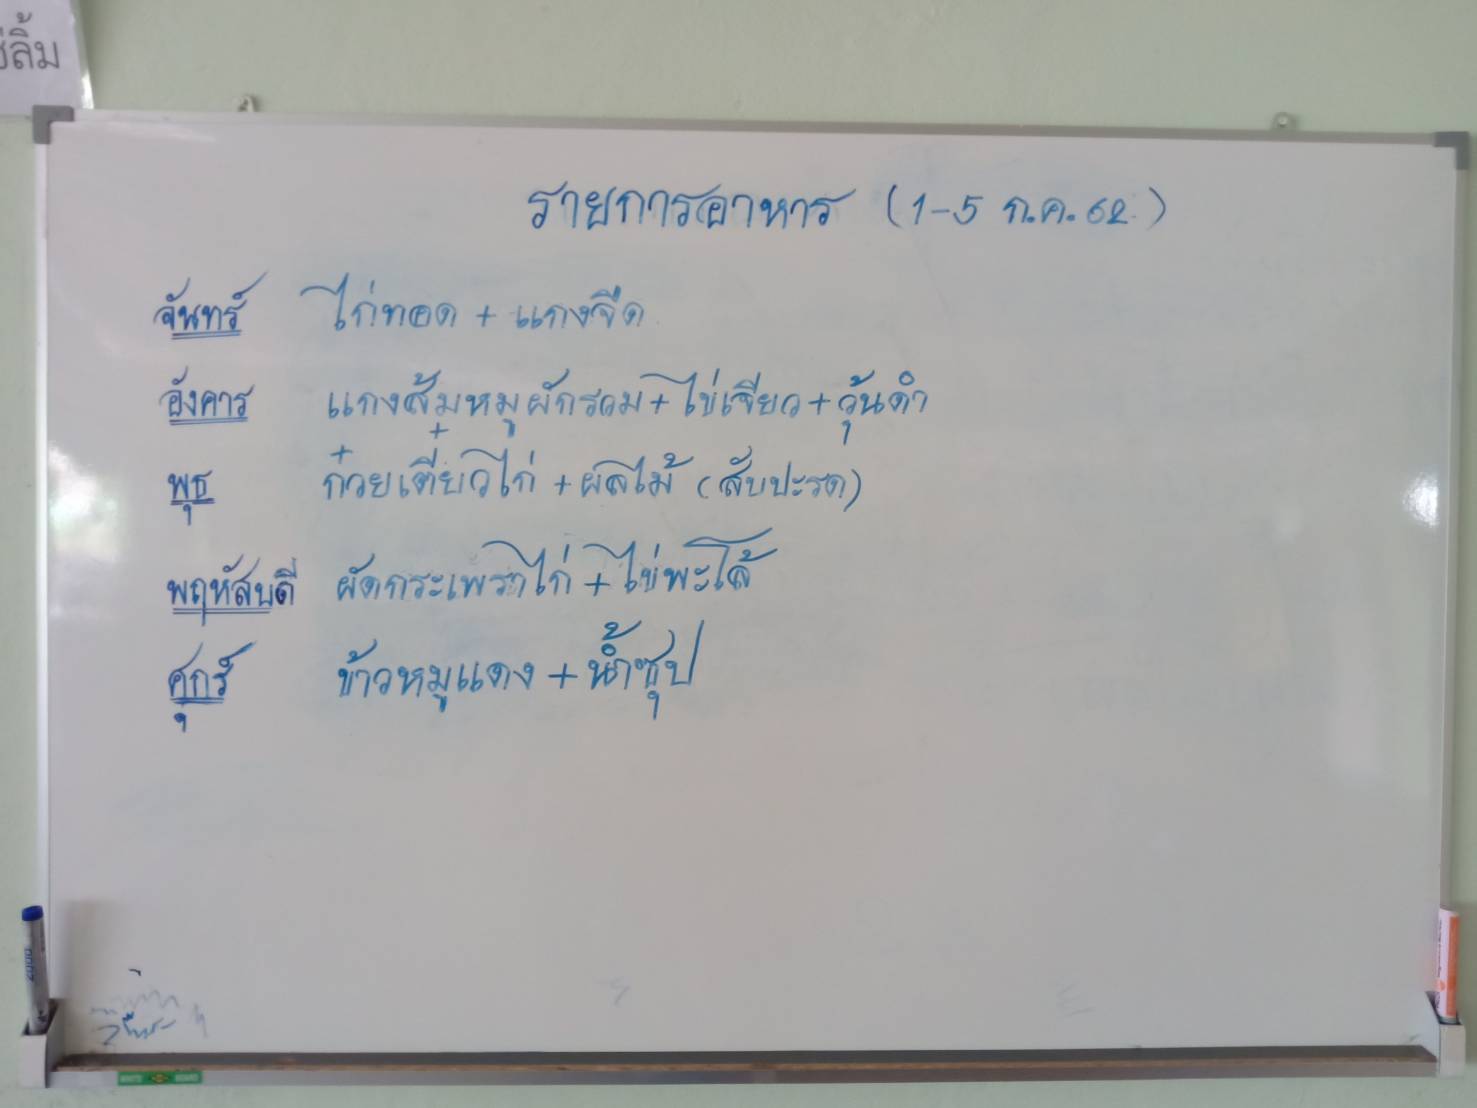 ช่ลิ้ม
รายการอาหาร (1-5 ก.ค. 62.)
จันทร์ ไก่ทอด + แกงจืด
อังคาร แกงส้มหมูผักรวม + ไข่เจียว + วุ้นดำ
พุธ ก๋วยเตี๋ยวไก่ + ผลไม้ (สับปะรด)
พฤหัสบดี ผัดกระเพราไก่ + ไข่พะโล้
ศุกร์ ข้าวหมูแดง + น้ำซุป
2000
WHITE BOARD